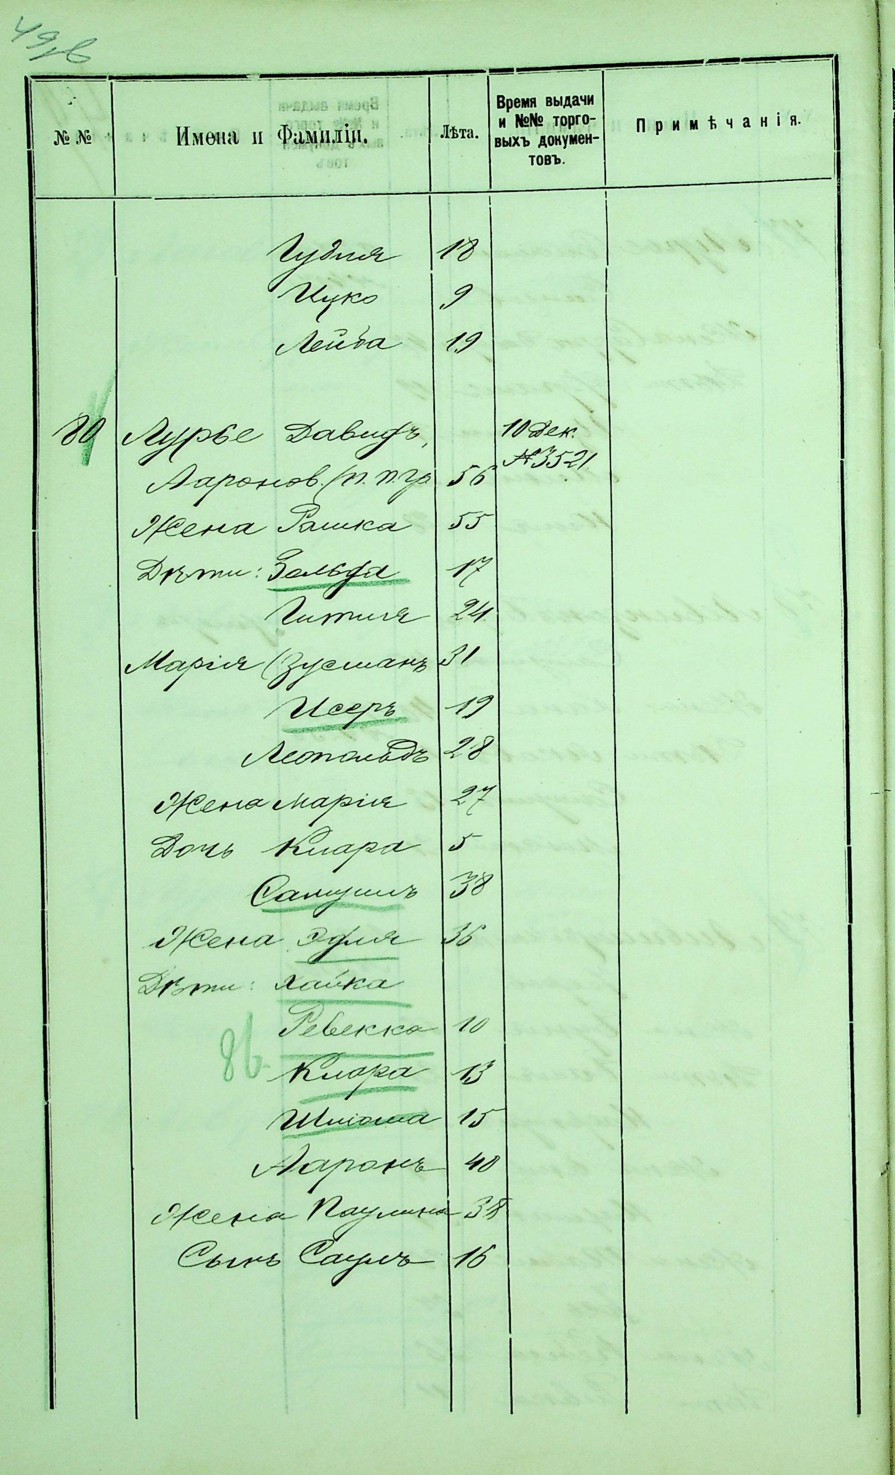 49/в
№№ Имена и Фамиліи. Лѣта. Время выдачи и №№ торговыхъ документовъ. Примѣчанія.
Гудля 18
Ицко 9
Лейба 19
80 Лурье Давидъ, 10 дек.
№3521
Ааронов. (п. п. гр. 56
Жена Рашка 55
Дѣти: Зельда 17
Гитля 24
Марія (Зусманъ 31
Исеръ 19
Леопольдъ 28
Жена Марія 27
Дочь Клара 5
Самуилъ 38
Жена Эдля 36
Дѣти: Хайка
Ребекка 10
86. Клара 13
Шліома 15
Ааронъ 40
Жена Паулина 38
Сынъ Саулъ 16